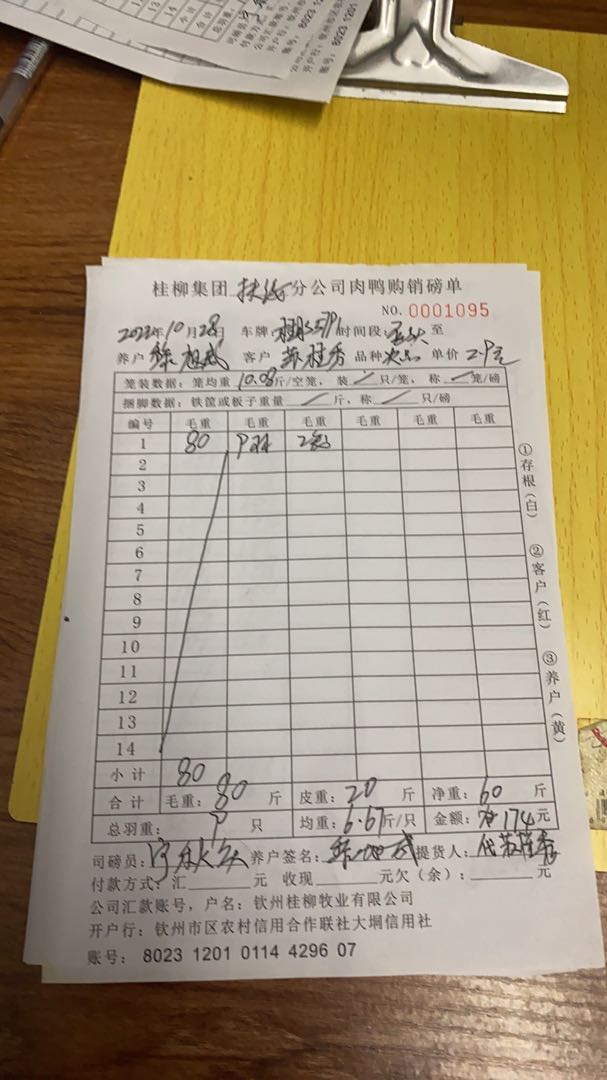 桂柳集团 扶绥 分公司肉鸭购销磅单
NO. 0001095
2022年10月28日 车牌: 时间段: 至
养户 客户 苏桂秀 品种 次品 单价 2.9元
笼装数据: 笼均重 10.08 斤/空笼, 装 只/笼, 称 笼/磅
捆脚数据: 铁筐或板子重量 斤, 称 只/磅
编号 毛重 毛重 毛重 毛重 毛重 毛重
1 80 9 2
2
3
4
5
6
7
8
9
10
11
12
13
14
小计 80
合计 毛重: 80 斤 皮重: 20 斤 净重: 60 斤
总羽重: 9 只 均重: 6.67 斤/只 金额: 174 元
司磅员: 养户签名: 提货人: 代苏桂秀
付款方式: 汇 元 收现 元欠(余): 元
公司汇款账号, 户名: 钦州桂柳牧业有限公司
开户行: 钦州市区农村信用合作联社大垌信用社
账号: 8023 1201 0114 4296 07
①存根(白)
②客户(红)
③养户(黄)